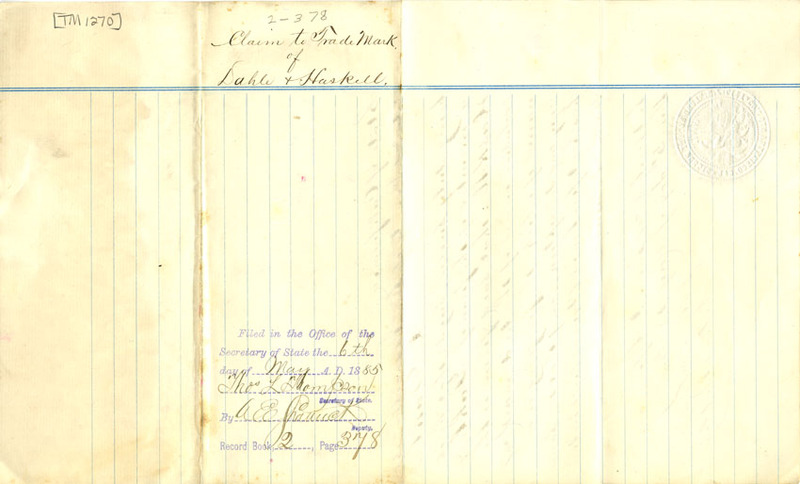 [TM 1270]
2-378
Claim to Trade Mark
of
Dahle & Haskell.
Filed in the Office of the
Secretary of State the 6th
day of May A.D. 1885
Thos L Thompson
Secretary of State.
By A E
Deputy.
Record Book 2, Page 378